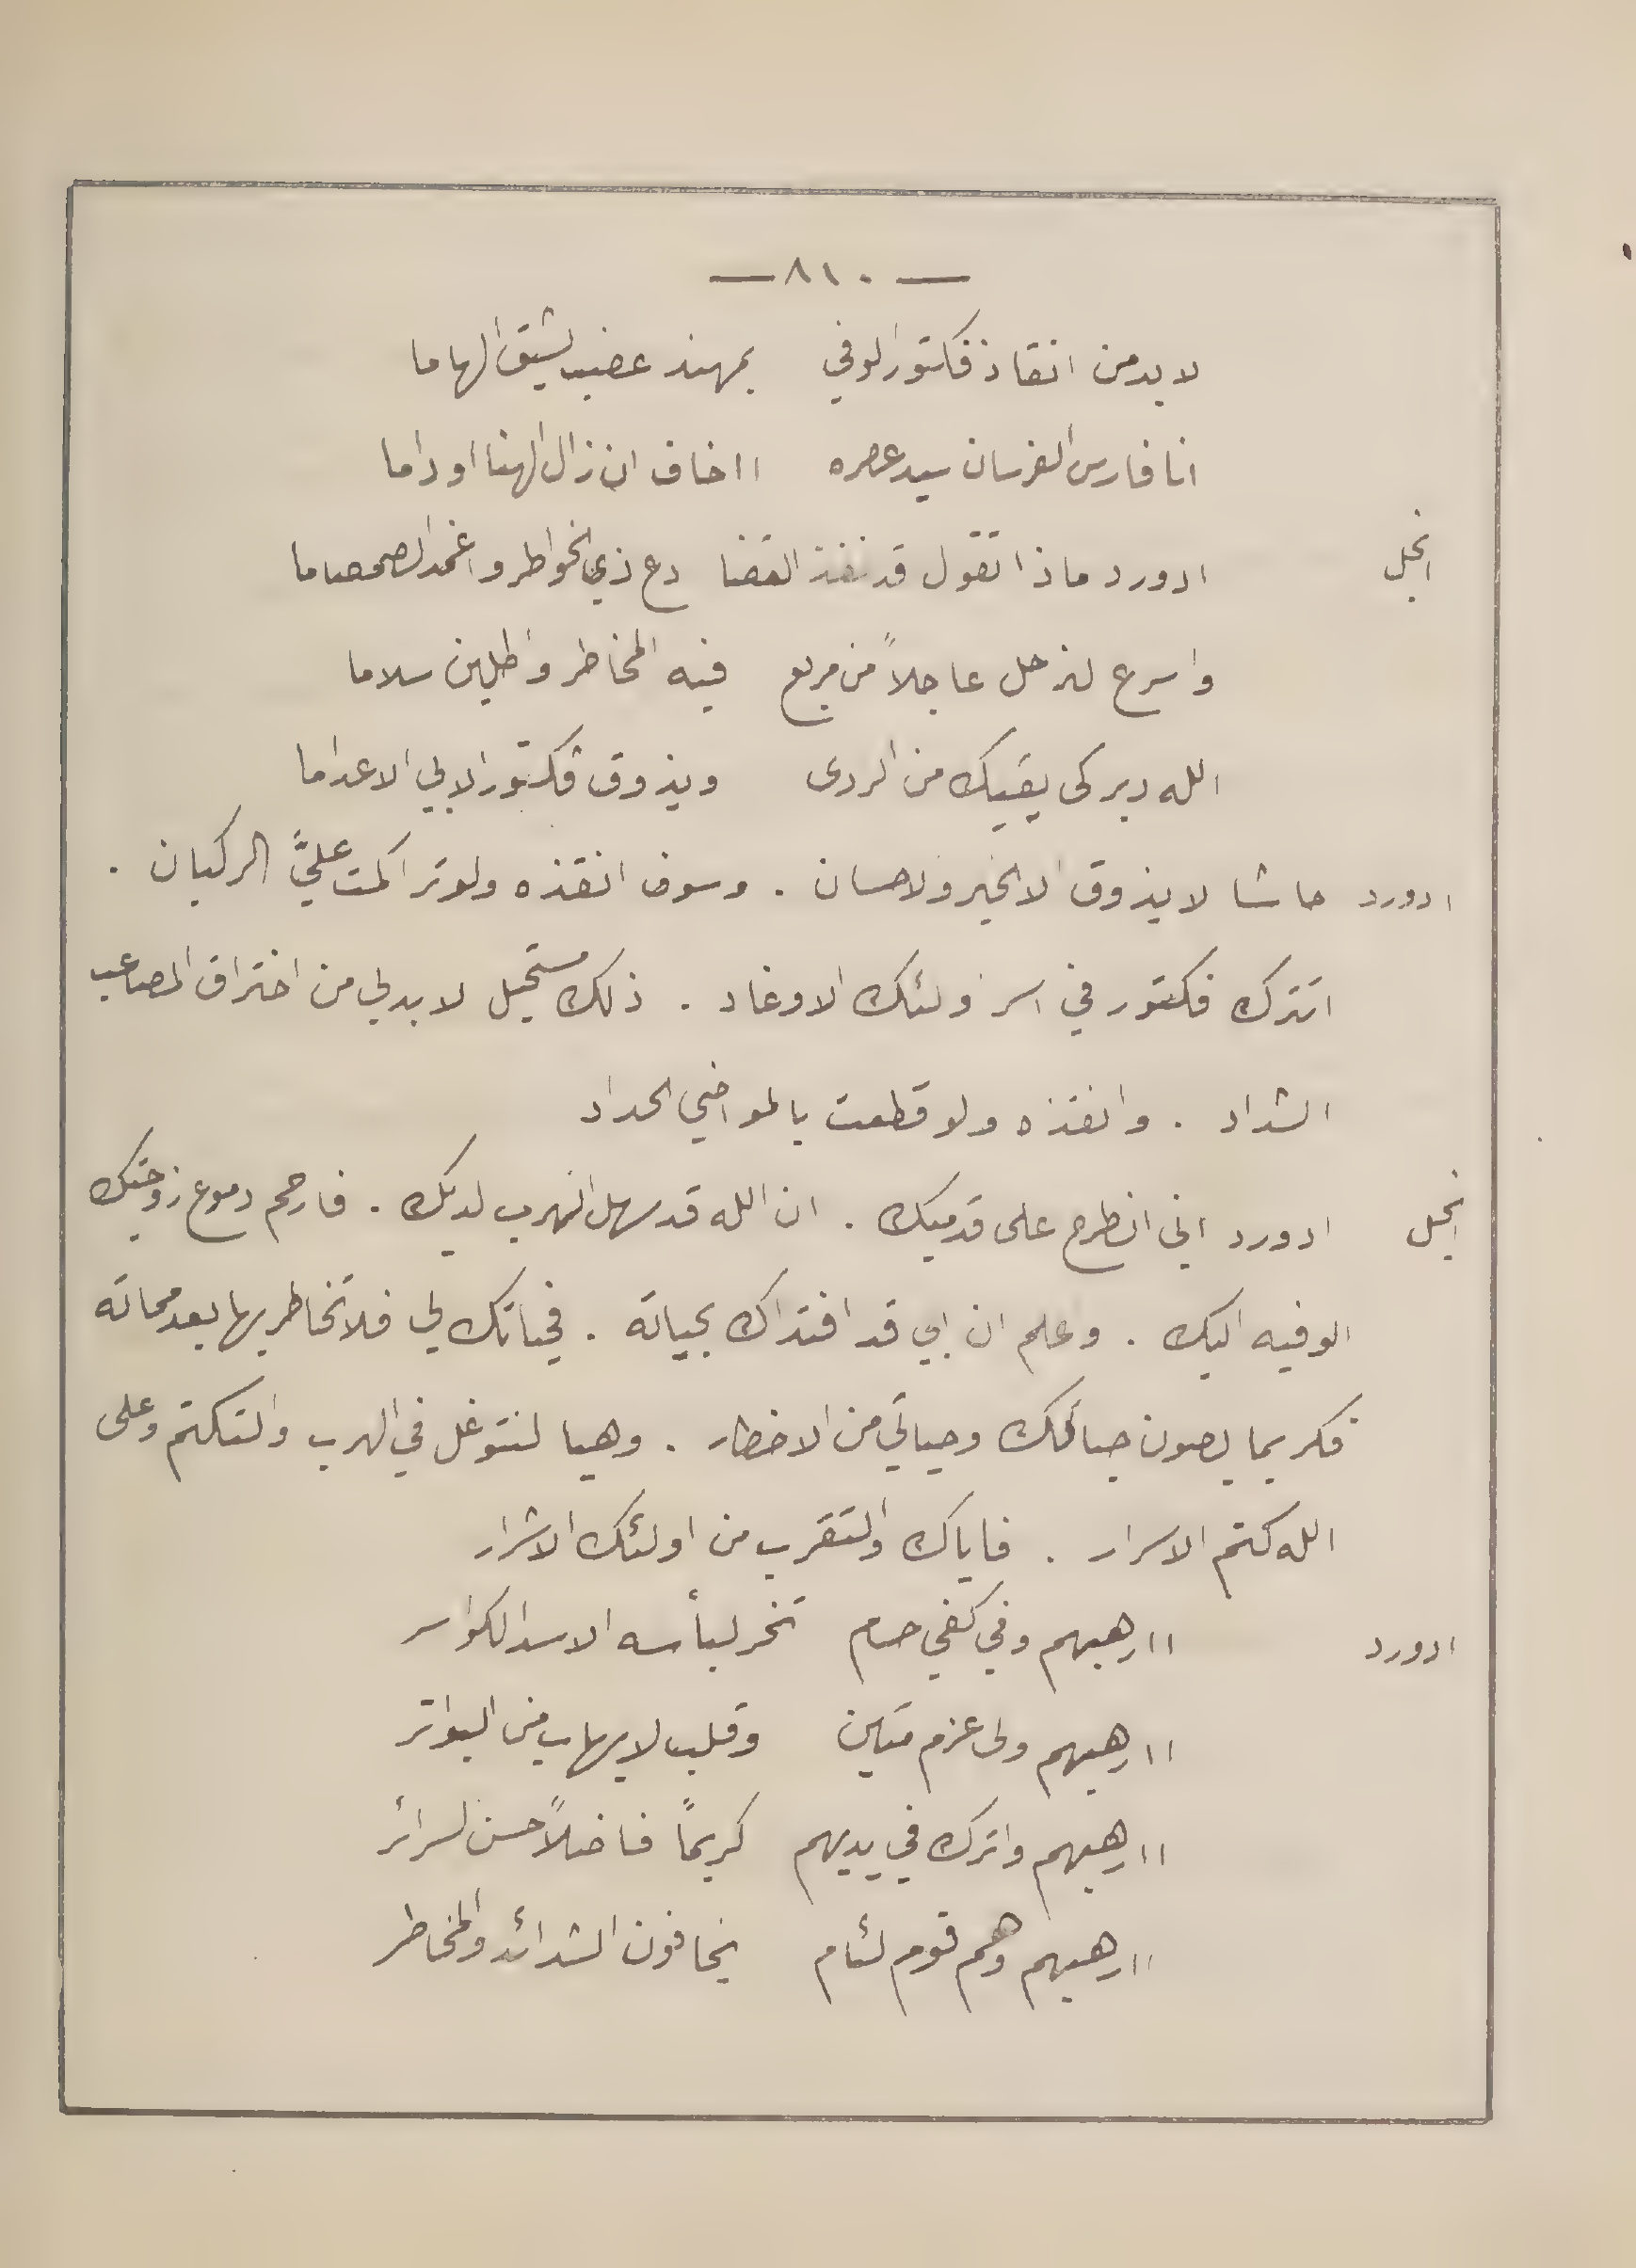 — ٨١٠ —
لا بد من انقاذ فكتور الوفي بمهند عضب يشيق الهاما
انا فارس الفرسان سيد عصره ااخاف ان زال الهنا او داما
انجل ادورد ماذا تقول قد نفذ القضا دع ذي الخواطر واغمد الصمصاما
واسرع لنرحل عاجلاً من مربع فيه المخاطر واطلبن سلاما
الله دبر كي يقيك من الردى ويذوق فكتور الابي الاعداما
ادورد حاشا لا يذوق الا الخير ولاحسان . وسوف انقذه ولو تراكمت عليَّ الركبان .
اترك فكتور في اسر اولئك الاوغاد . ذلك مستحيل لا بد لي من اختراق المصاعب
الشداد . وانقذه ولو قطعت بالمواضي الحداد
انجيل ادورد اني انطرح على قدميك . ان الله قد سهل الهرب لديك . فارحم دموع زوجتك
الوفيه اليك . وعلم ان ابي قد افتداك بحياته . فحياتك لي فلا تخاطر بها بعد مماته
فكر بما يصون حياتك وحياتي من الاخطار . وهيا لنتوغل في الهرب والتكتم وعلى
الله كتم الاسرار . فاياك والتقرب من اولئك الاشرار
ادورد اارهبهم وفي كفي حسام تخر لبأسه الاسد الكواسر
اارهبهم ولي عزم متين وقلب لا يهاب من البواتر
اارهبهم واترك في يديهم كريماً فاضلاً حسن لسرائر
اارهبهم وهم قوم لئام يخافون الشدائد والمخاطر